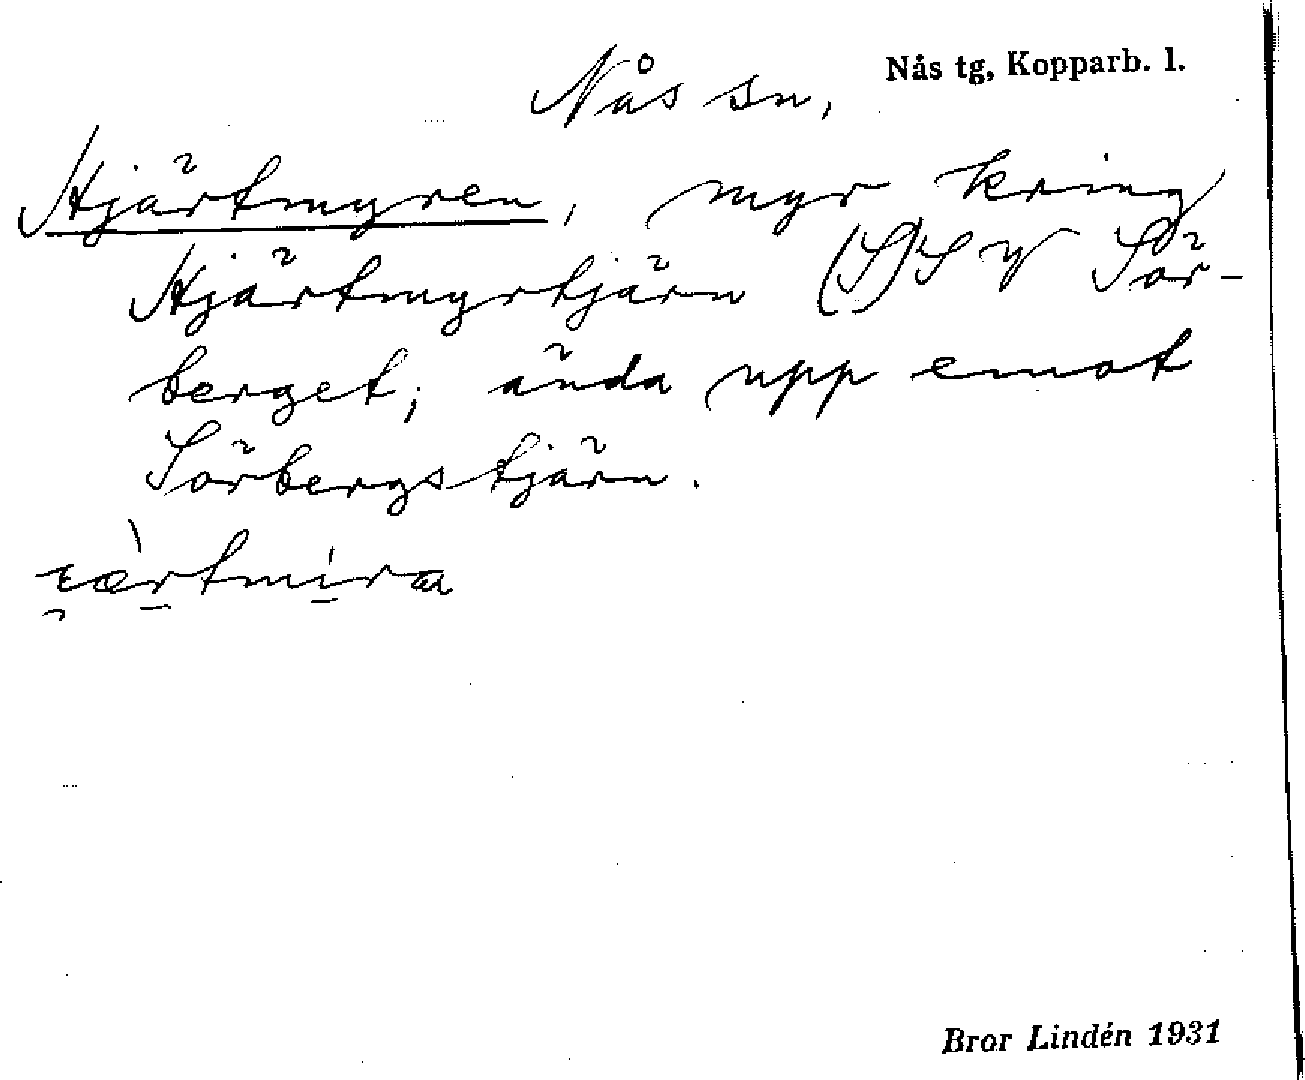 Nås tg, Kopparb. l.
Nås sn,
Hjärtmyren, myr kring
Hjärtmyrtjärn (S)SV Sör-
berget; ända upp emot
Sörbergstjärn.
Bror Lindén 1931